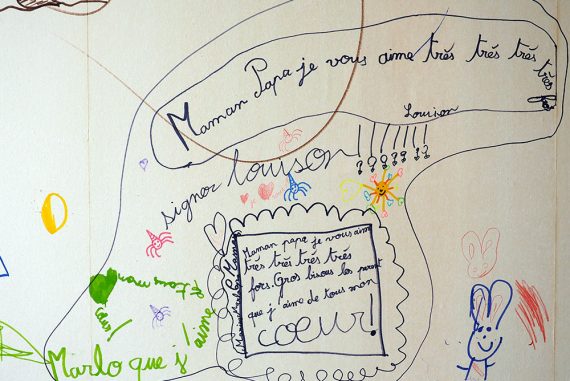 Maman Papa je vous aime trés trés trés trés
Louison
signer louison !!!!!!!
Maman papa je vous aime
trés trés trés trés
fors. Gros bisous les parent
que j'aime de tous mon
coeur!
Marlo que j'aime